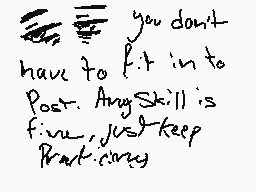 you don't
have to fit in to
Post. Any Skill is
fine, just keep
Practicing